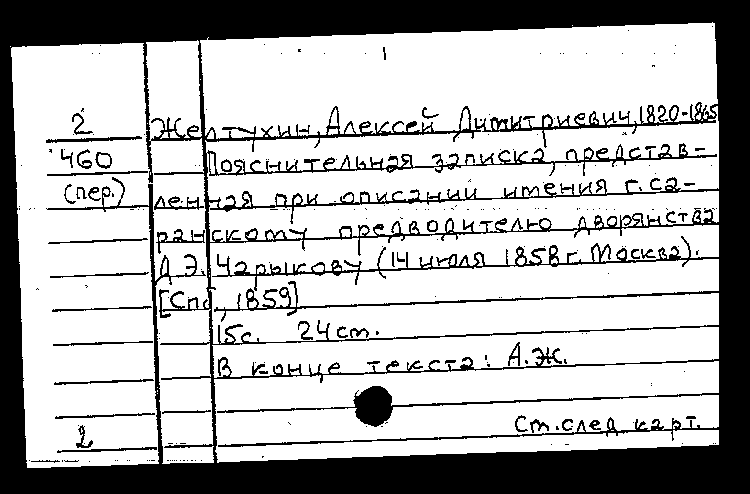 2 Желтухин, Алексей Димитриевич, 1820-1865
460 Пояснительная записка, представ-
(пер.) ленная при описании имения г. са-
ранскому предводителю дворянства
Д.Э. Чарыкову (14 июля 1858 г. Москва).
[Спб, 1859]
15с. 24 см.
В конце текста: А.Ж.
См. след карт.
2